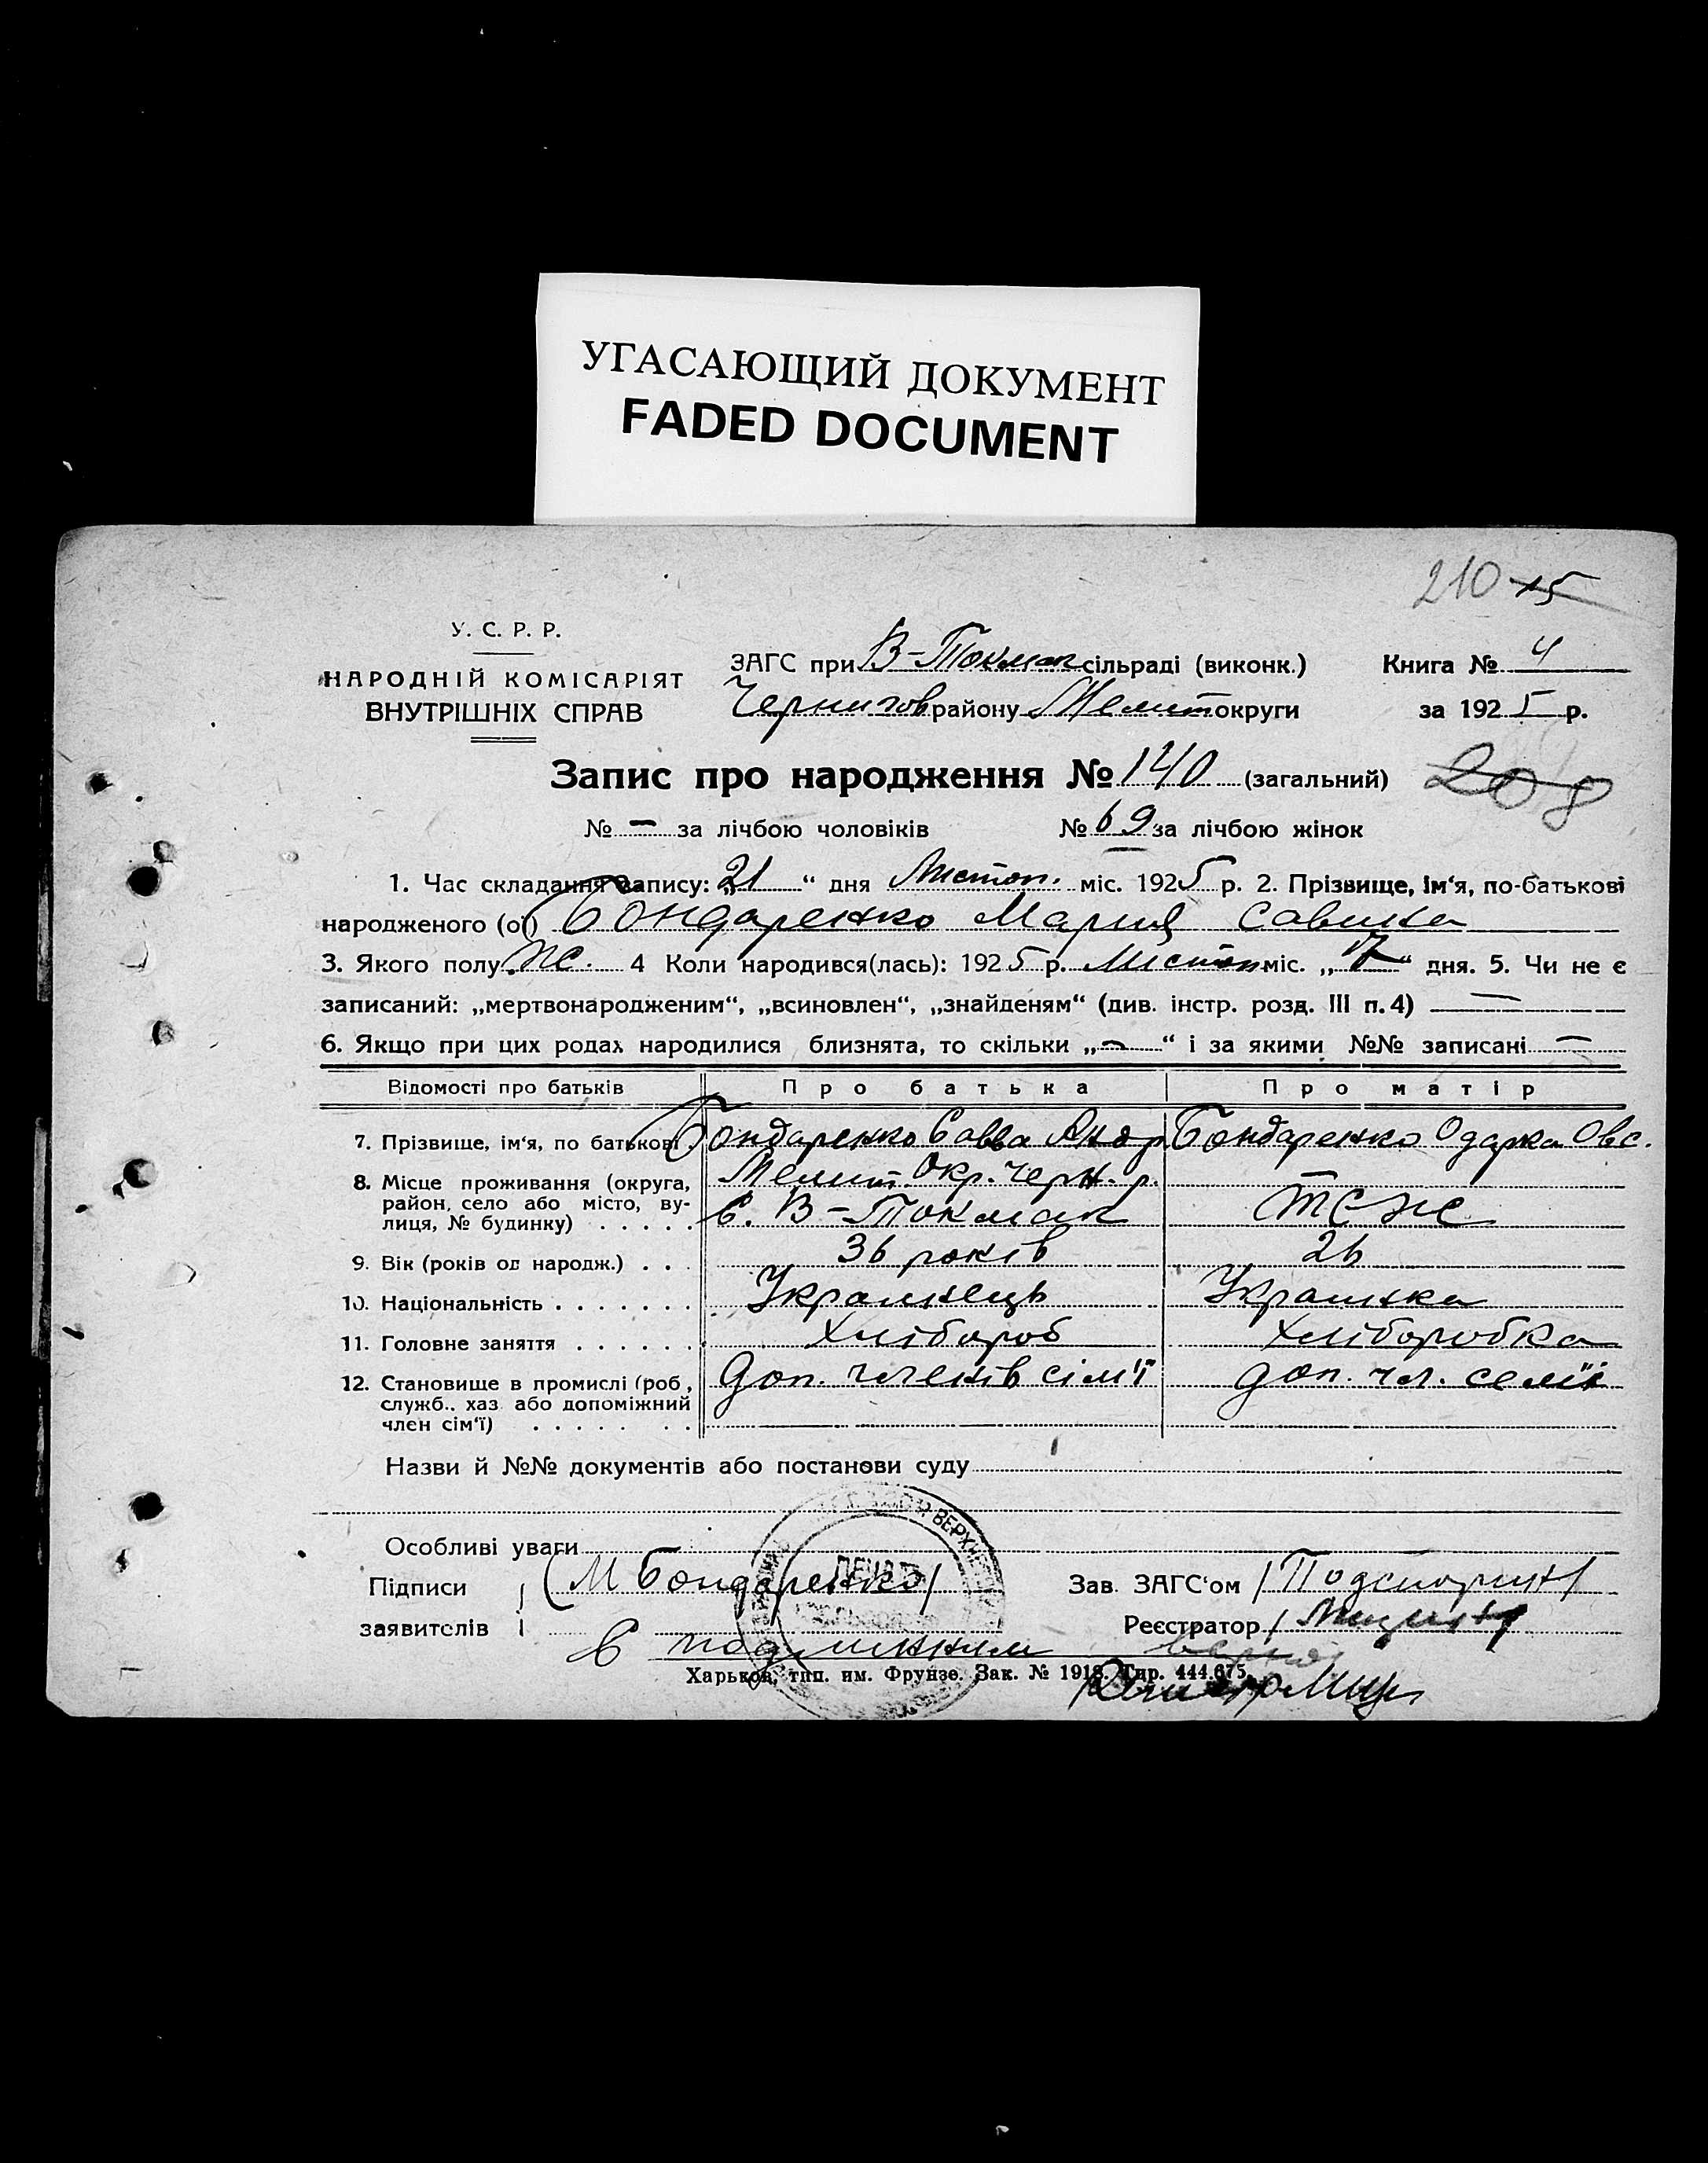 УГАСАЮЩИЙ ДОКУМЕНТ
FADED DOCUMENT
210 15
У. С. Р. Р.
НАРОДНІЙ КОМІСАРІЯТ
ВНУТРІШНІХ СПРАВ
ЗАГС при В-Токмак сільраді (виконк.) Книга № 4
Чернигов району Мелит округи за 1925 р.
Запис про народження № 140 (загальний) 208
№ — за лічбою чоловіків № 69 за лічбою жінок
1. Час складання запису: „21“ дня Листоп. міс. 1925 р. 2. Прізвище, ім‘я, по-батькові
народженого (ої) Бондаренко Мария Савина
3. Якого полу ж. 4 Коли народився(лась): 1925 р. Листоп міс. „17“ дня. 5. Чи не є
записаний: „мертвонародженим“, „всиновлен“, „знайденям“ (див. інстр. розд. III п. 4) —
6. Якщо при цих родах народилися близнята, то скільки „—“ і за якими №№ записані —
Відомості про батьків Про батька Про матір
7. Прізвище, ім‘я, по батькові Бондаренко Савва Андр Бондаренко Одарка Овс.
8. Місце проживання (округа, Мелит. Окр. Черн. р.
район, село або місто, ву- с. В-Токмак тсж
лиця, № будинку) . . . .
9. Вік (років од народж.) . . . 36 років 26
10. Національність . . . . . . . Украинець Украинка
11. Головне заняття . . . . . . Хлібороб Хлібооробка
12. Становище в промислі (роб., Доп. членів сім'ї доп. чл. семїі
служб., хаз або допоміжний
член сім‘ї) . . . . . . .
Назви й №№ документів або постанови суду
Особливі уваги
Підписи (М Бондаренко) Зав. ЗАГС‘ом /Подсторчук/
заявителів Реєстратор /
С подлинним верно
Харьков, тип. им. Фрунзе. Зак. № 1918. Тир. 444.675.